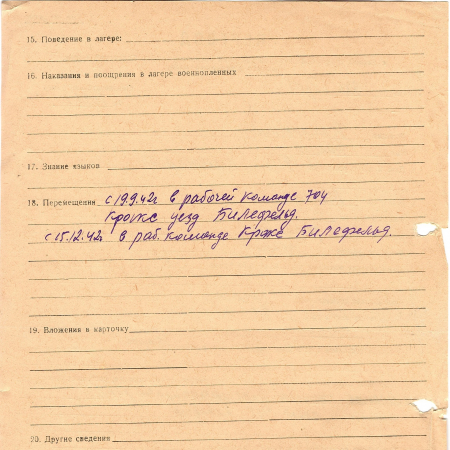 15. Поведение в лагере:
16. Наказания и поощрения в лагере военнопленных
17. Знание языков
18. Перемещения с 19.9.42г в рабочей команде 704
Крокс уезд Билефельд.
с 15.12.42г в раб. команде Крже Билефельд.
19. Вложения в карточку
20. Другие сведения